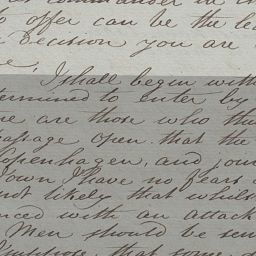 Commander in
to offer can be the
Decision you are
I shall begin with
termined to enter by
are those who
passage open. that the
Copenhagen, and
Town I have no fears
not likely that whilst
nced with an attack
Men should be
that some